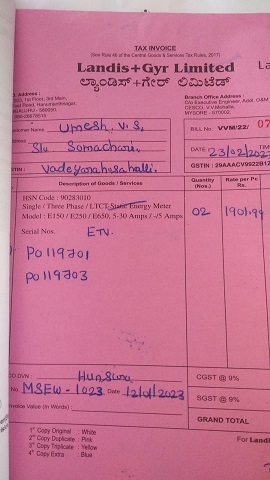 TAX INVOICE
(See Rule 46 of the Central Goods & Services Tax Rules, 2017)
Landis+Gyr Limited
ಲ್ಯಾಂಡಿಸ್+ಗೇರ್ ಲಿಮಿಟೆಡ್
Address :
1st Floor, 3rd Main,
Road, Hanumanthnagar,
BENGALURU - 560050.
Branch Office Address :
C/o Executive Engineer, Addl. O&M
CESCO, V.V.Mohalla,
MYSORE - 570002
Customer Name Umesh. V. S.
BILL No. VVM/22/ 07
S/o Somachari
DATE 23/02/202 TIME
Vadeyanahosahalli.
GSTIN : 29AAACV9922B1Z
Description of Goods / Services Quantity (Nos.) Rate per Pc Rs.
HSN Code : 90283010
Single / Three Phase / LTCT Static Energy Meter
Model : E150 / E250 / E650, 5-30 Amps / -/5 Amps 02 1901.99
Serial Nos. ETV.
P0119701
P0119703
DVN : Hunsur
CGST @ 9%
No. MSEW-1023 Date 12/01/2023
SGST @ 9%
Invoice Value (In Words)
GRAND TOTAL
1st Copy Original : White
2nd Copy Duplicate : Pink
3rd Copy Triplicate : Yellow
4th Copy Extra : Blue
For Landi